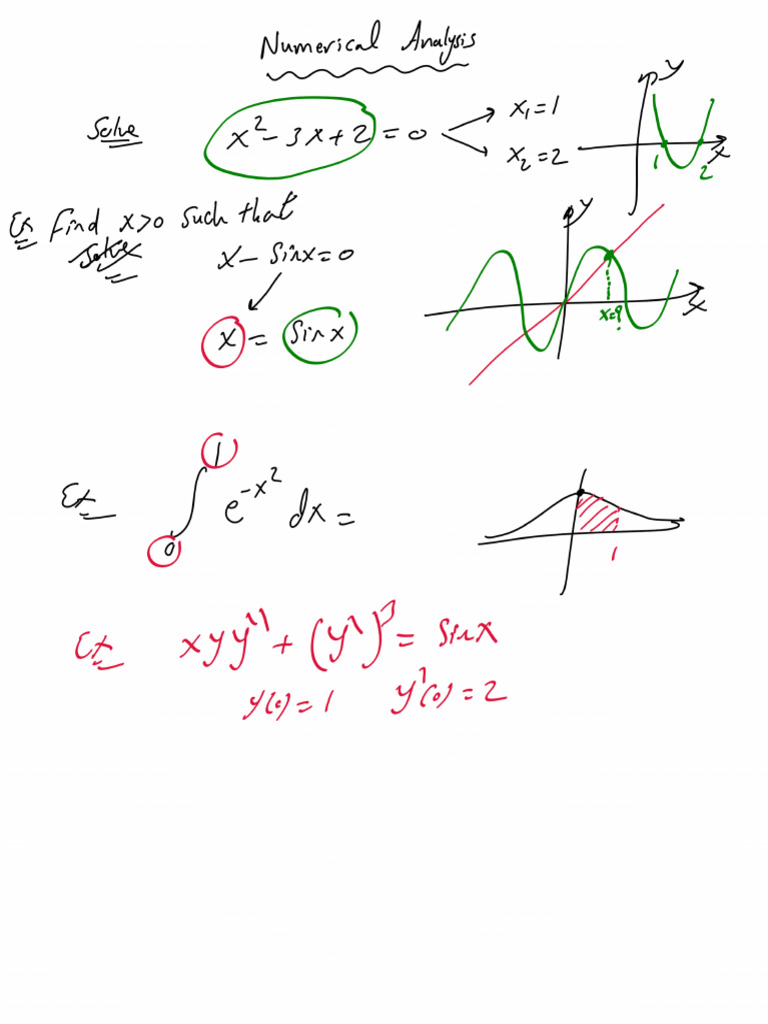 Numerical Analysis
Solve x² - 3x + 2 = 0 x₁ = 1
x₂ = 2
y
x
1
2
Ex Find x>0 such that
Solve x - sinx = 0
x = sinx
y
x
x=?
Ex ∫₀¹ e^{-x²} dx =
1
Ex xyy'' + (y')³ = sinx
y(0) = 1 y'(0) = 2